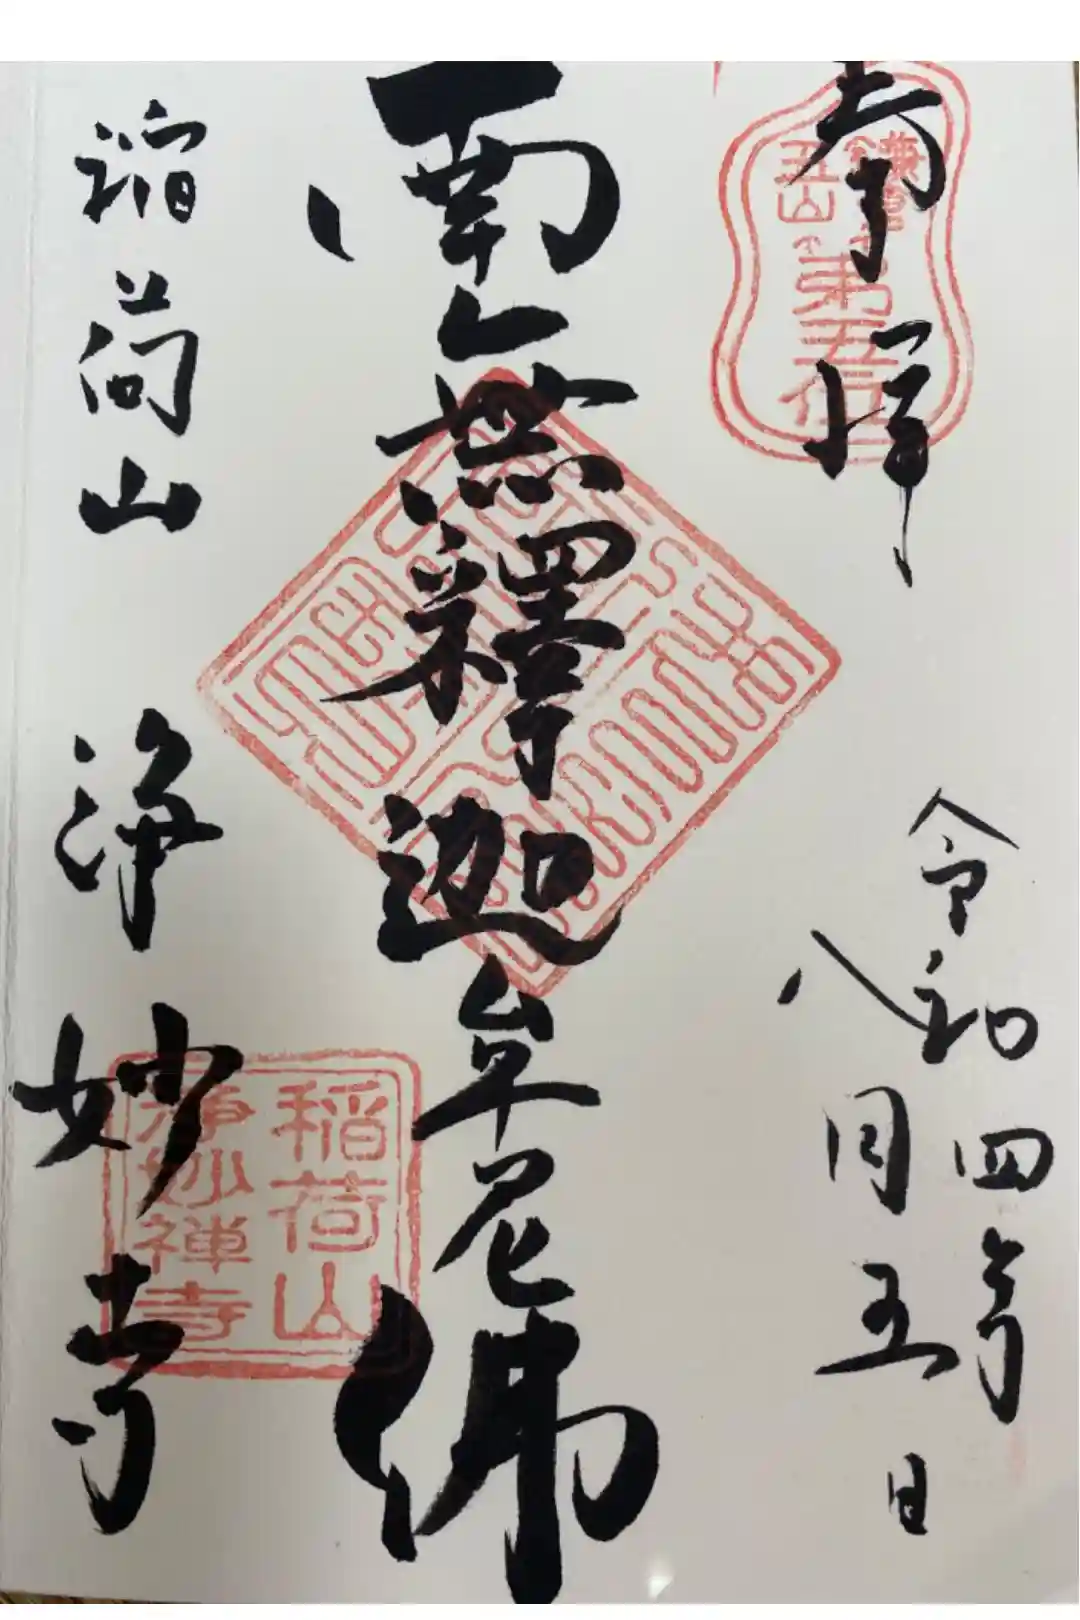 奉拝
鎌倉
五山
第五位
令和四年
八月五日
南無釋迦牟尼佛
稲荷山 浄妙寺
稲荷山
浄妙禅寺